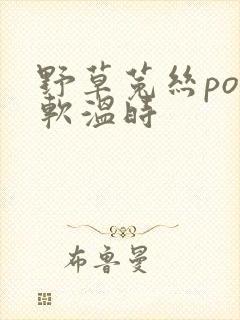 野草菟絲po
軟溫時
布魯曼